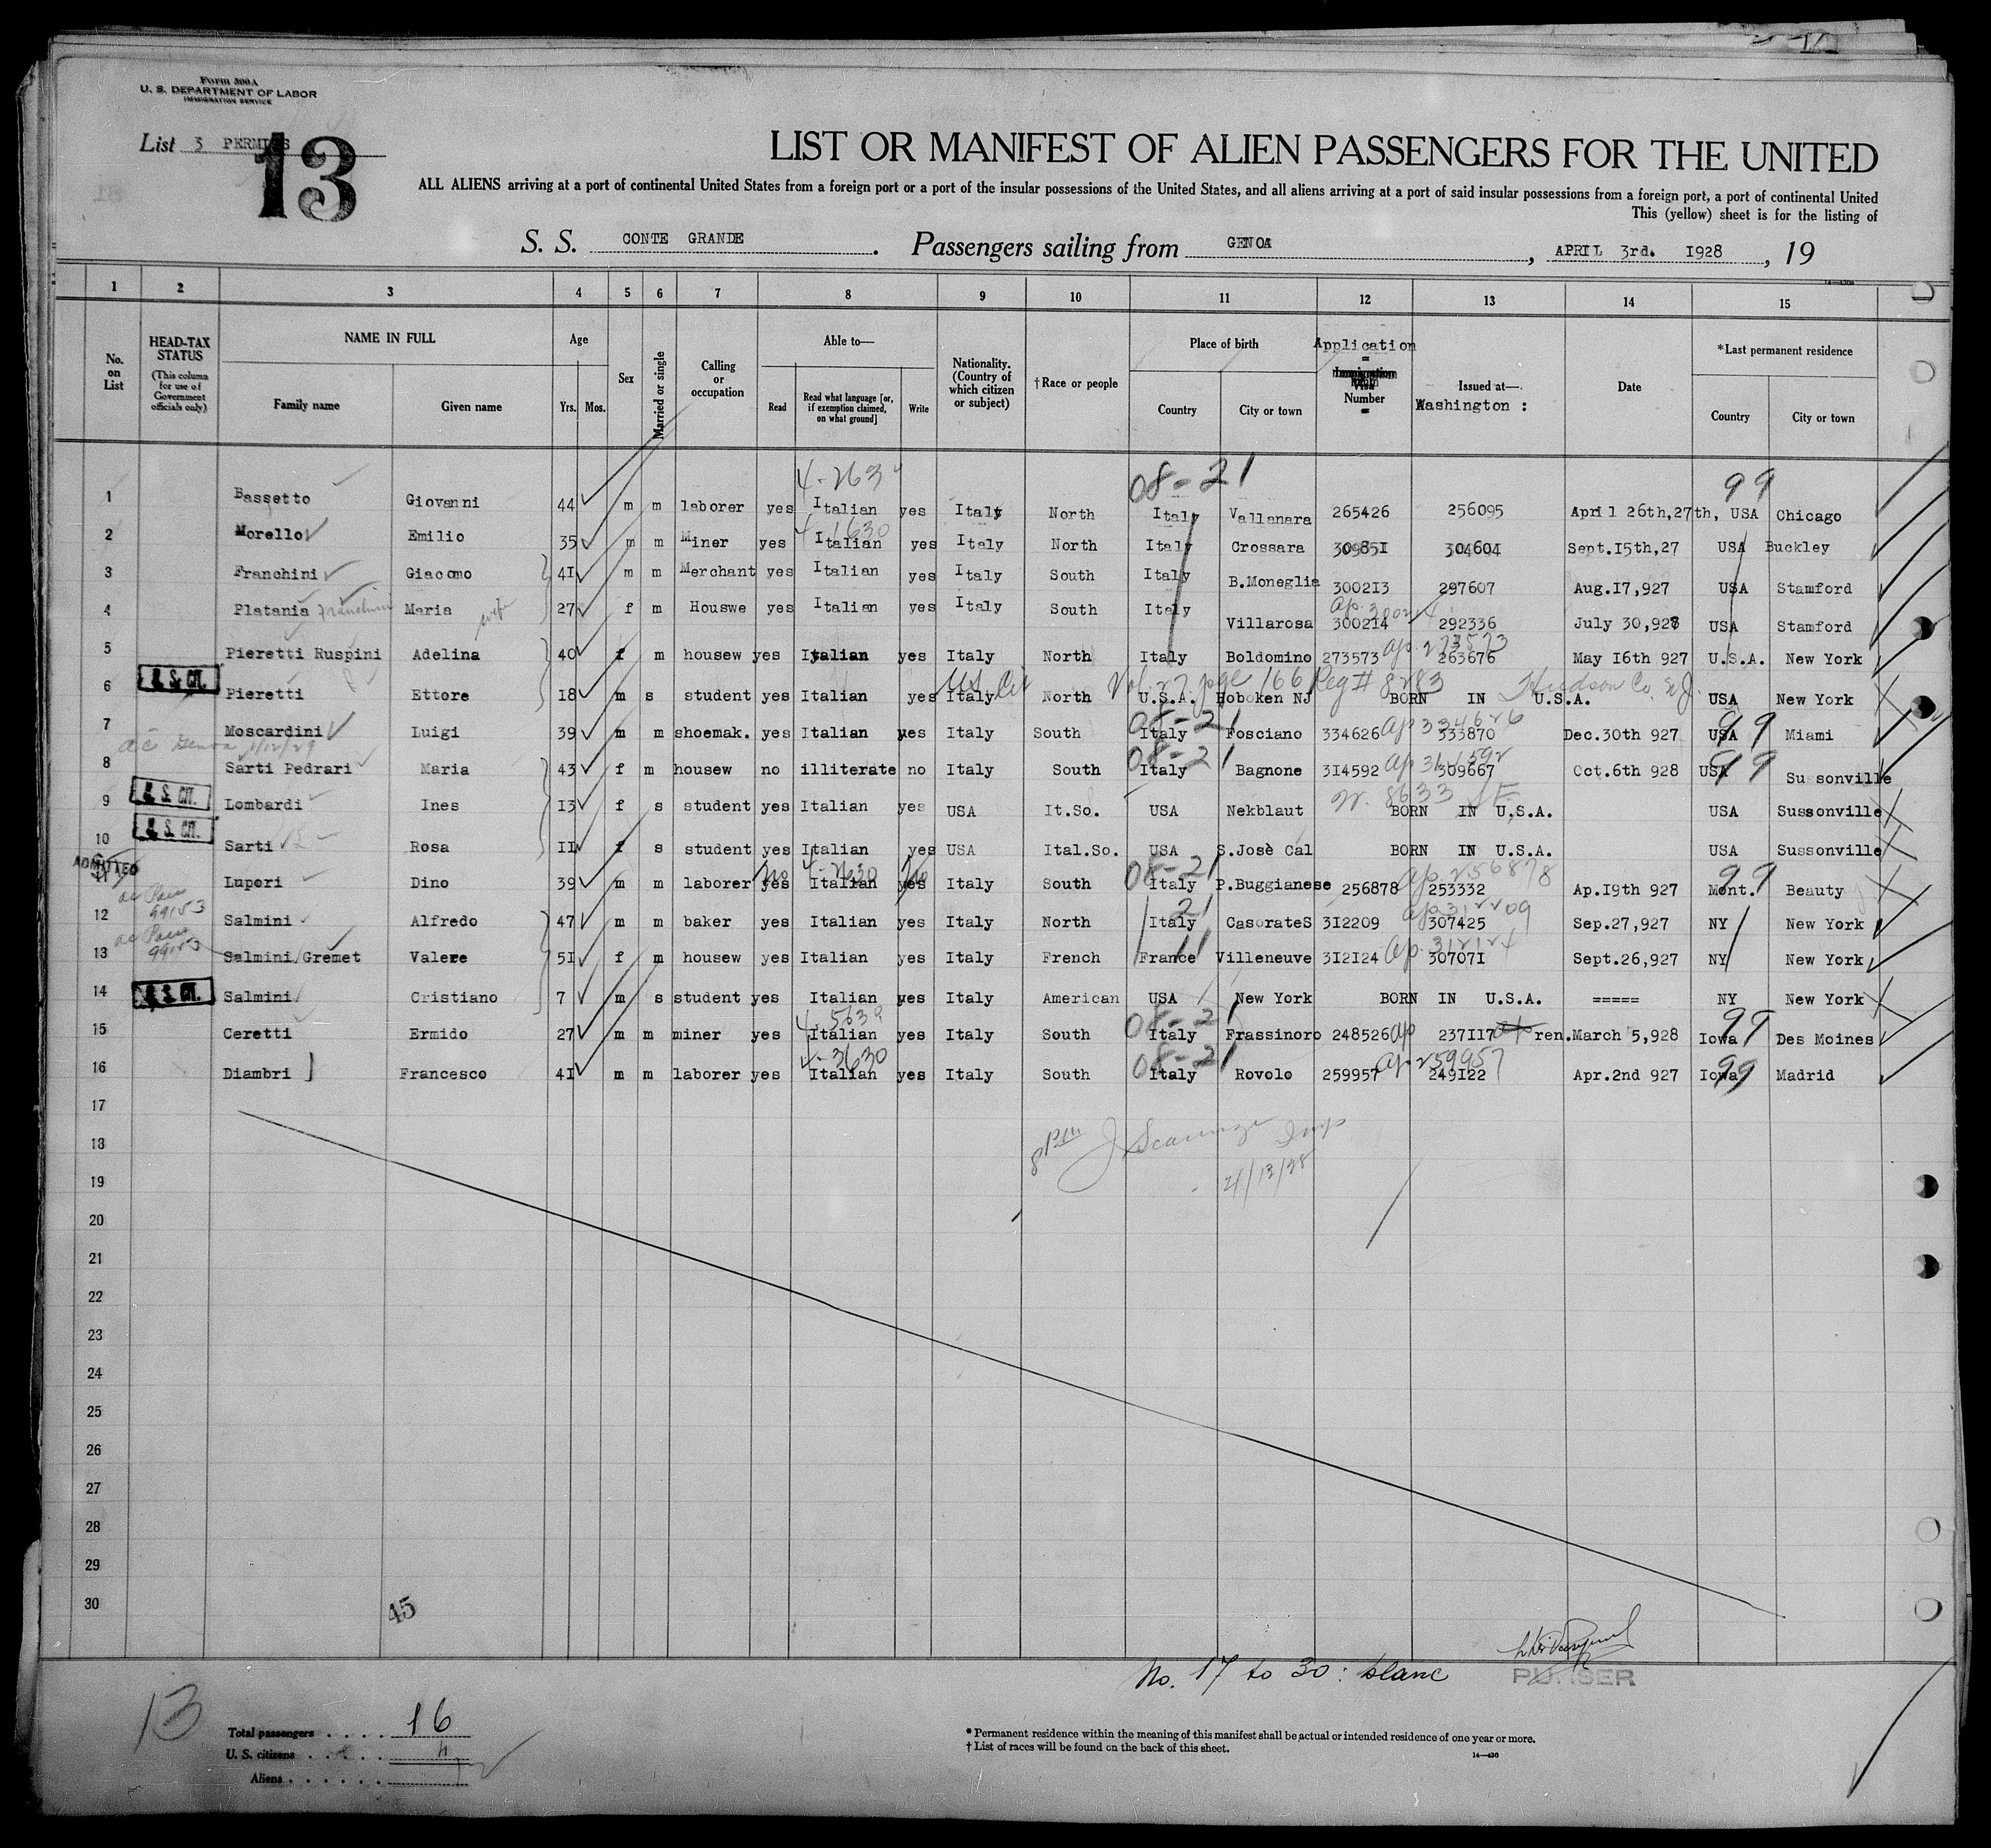 Form 500A
U. S. DEPARTMENT OF LABOR
IMMIGRATION SERVICE
List 3 PERMITS
13
LIST OR MANIFEST OF ALIEN PASSENGERS FOR THE UNITED
ALL ALIENS arriving at a port of continental United States from a foreign port or a port of the insular possessions of the United States, and all aliens arriving at a port of said insular possessions from a foreign port, a port of continental United
This (yellow) sheet is for the listing of
S. S. CONTE GRANDE. Passengers sailing from GENOA, APRIL 3rd. 1928, 19
1 2 3 4 5 6 7 8 9 10 11 12 13 14 15
No. on List
HEAD-TAX STATUS (This column for use of Government officials only)
NAME IN FULL
Family name Given name
Age
Yrs. Mos.
Sex
Married or single
Calling or occupation
Able to—
Read Read what language [or, if exemption claimed, on what ground] Write
Nationality. (Country of which citizen or subject)
†Race or people
Place of birth
Country City or town
Application = Number =
Issued at— Washington :
Date
*Last permanent residence
Country City or town
4-263 08-21 99
1 Bassetto Giovanni 44 m m laborer yes Italian yes Italy North Italy Vallanara 265426 256095 April 26th,27th, USA Chicago
4 1630
2 Morello Emilio 35 m m Miner yes Italian yes Italy North Italy Crossara 309851 304604 Sept.15th,27 USA Buckley
3 Franchini Giacomo 41 m m Merchant yes Italian yes Italy South Italy B.Moneglia 300213 297607 Aug.17,927 USA Stamford
4 Platania Franchini Maria wife 27 f m Houswe yes Italian yes Italy South Italy Villarosa ap.300214 300214 292336 July 30,927 USA Stamford
5 Pieretti Ruspini Adelina 40 f m housew yes Italian yes Italy North Italy Boldomino 273573 ap. 273573 263676 May 16th 927 U.S.A. New York
U. S. CIT. US Cit Vol. 27 page 166 Reg # 8283 Hudson Co. NJ.
6 Pieretti Ettore 18 m s student yes Italian yes Italy North U.S.A. Hoboken NJ BORN IN U.S.A. USA New York
08-21 ap 334626 99
7 Moscardini Luigi 39 m m shoemak. yes Italian yes Italy South Italy Fosciano 334626 333870 Dec.30th 927 USA Miami
Genova 1/12/29 08-21 ap 314592 99
8 Sarti Pedrari Maria 43 f m housew no illiterate no Italy South Italy Bagnone 314592 309667 Oct.6th 928 USA Sussonville
U. S. CIT. 8633
9 Lombardi Ines 13 f s student yes Italian yes USA It.So. USA Nekblaut BORN IN U.S.A. USA Sussonville
U. S. CIT.
10 Sarti Rosa 11 f s student yes Italian yes USA Ital.So. USA S.Josè Cal BORN IN U.S.A. USA Sussonville
ADMITTED no 4-2630 no 08-21 ap 256878 99
11 Luperi Dino 39 m m laborer yes Italian yes Italy South Italy P.Buggianese 256878 253332 Ap.19th 927 Mont. Beauty
99153 21 ap 312209
12 Salmini Alfredo 47 m m baker yes Italian yes Italy North Italy CasorateS 312209 307425 Sep.27,927 NY New York
99153 ap. 312124
13 Salmini/Gremet Valere 51 f m housew yes Italian yes Italy French France Villeneuve 312124 307071 Sept.26,927 NY New York
U. S. CIT.
14 Salmini Cristiano 7 m s student yes Italian yes Italy American USA New York BORN IN U.S.A. ===== NY New York
4-5639 08-21 99
15 Ceretti Ermido 27 m m miner yes Italian yes Italy South Italy Frassinoro 248526 ap 237117 ren.March 5,928 Iowa Des Moines
4-3630 08-21 ap 259957 99
16 Diambri Francesco 41 m m laborer yes Italian yes Italy South Italy Rovolo 259957 249122 Apr.2nd 927 Iowa Madrid
17
18
19
4/13/28
20
21
22
23
24
25
26
27
28
29
30
45
No. 17 to 30 : blanc
PURSER
13
Total passengers . . . . 16
U. S. citizens . . . . . 4
Aliens . . . . . . 12
* Permanent residence within the meaning of this manifest shall be actual or intended residence of one year or more.
† List of races will be found on the back of this sheet.
14—430